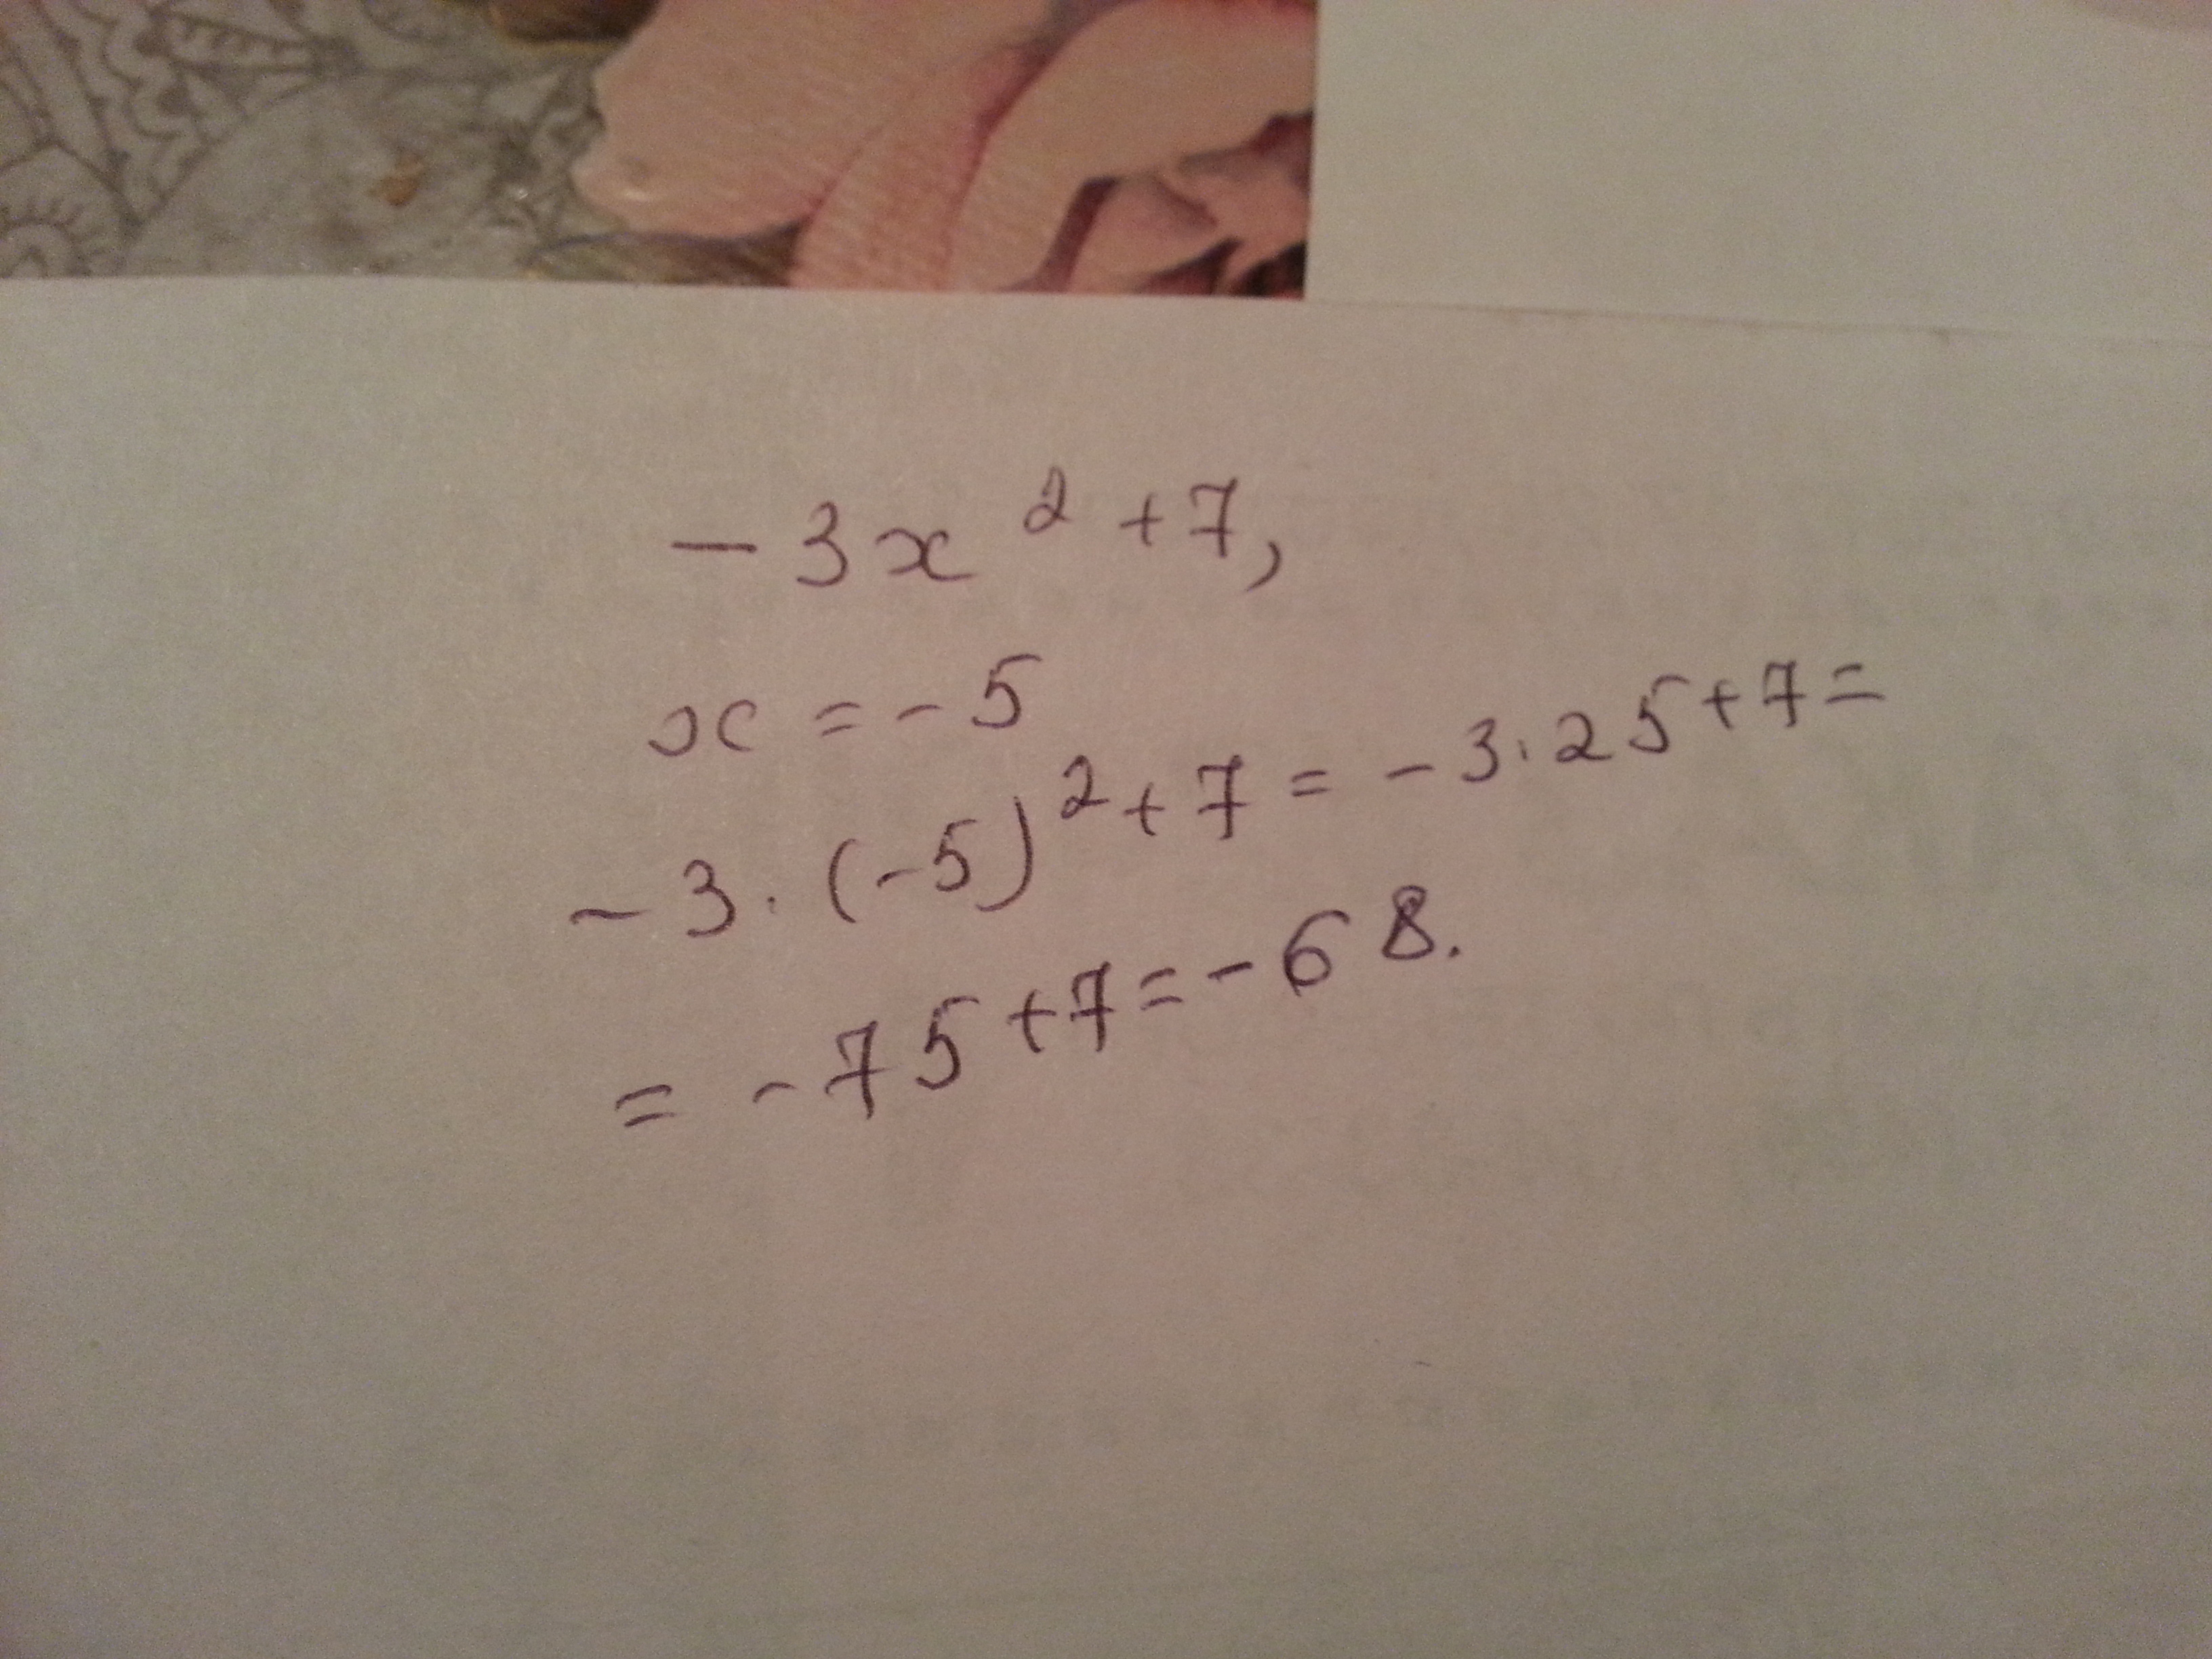 -3x² +7,
x = -5
-3·(-5)²+7 = -3·25+7=
= -75+7=-68.